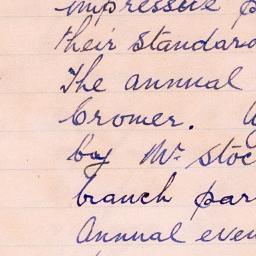 impressive p
their standard
The annual
Cromer.
by Mr. Stoc
branch par
Annual even